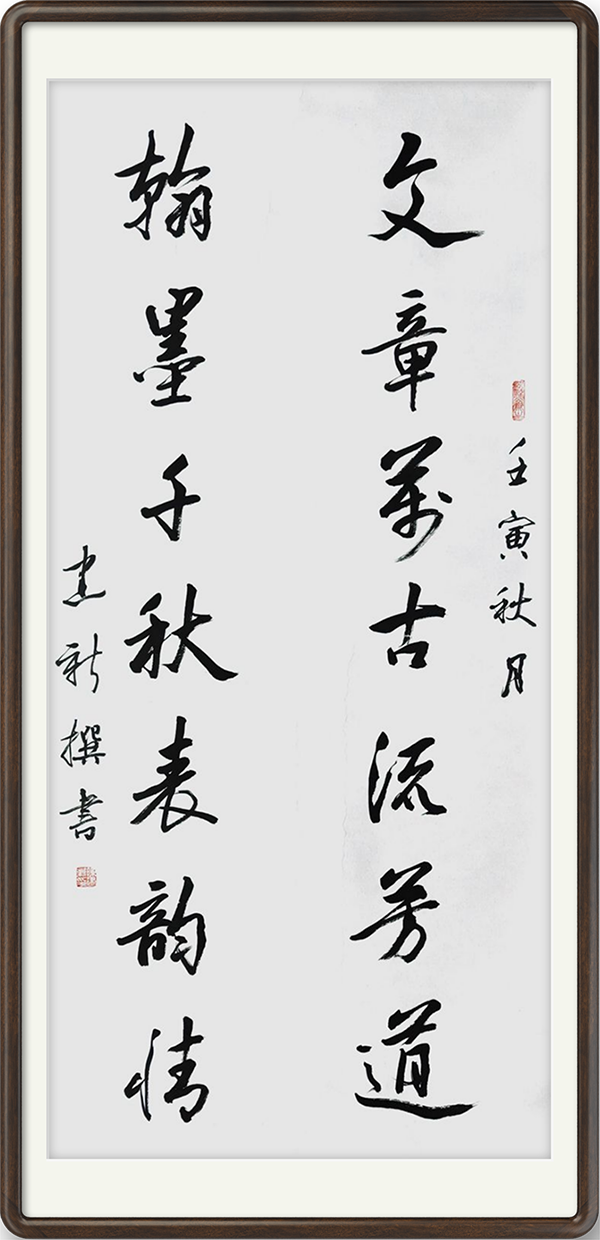 壬寅秋月
文章萬古流芳道
翰墨千秋表韵情
志新撰書